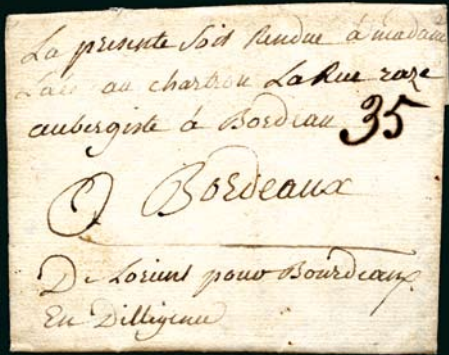 La presente soit Rendue à madame
au chartron La Rue raze
aubergiste à Bordeau 35
À Bordeaux
De Lorient pour Bourdeaux
En Dilligence